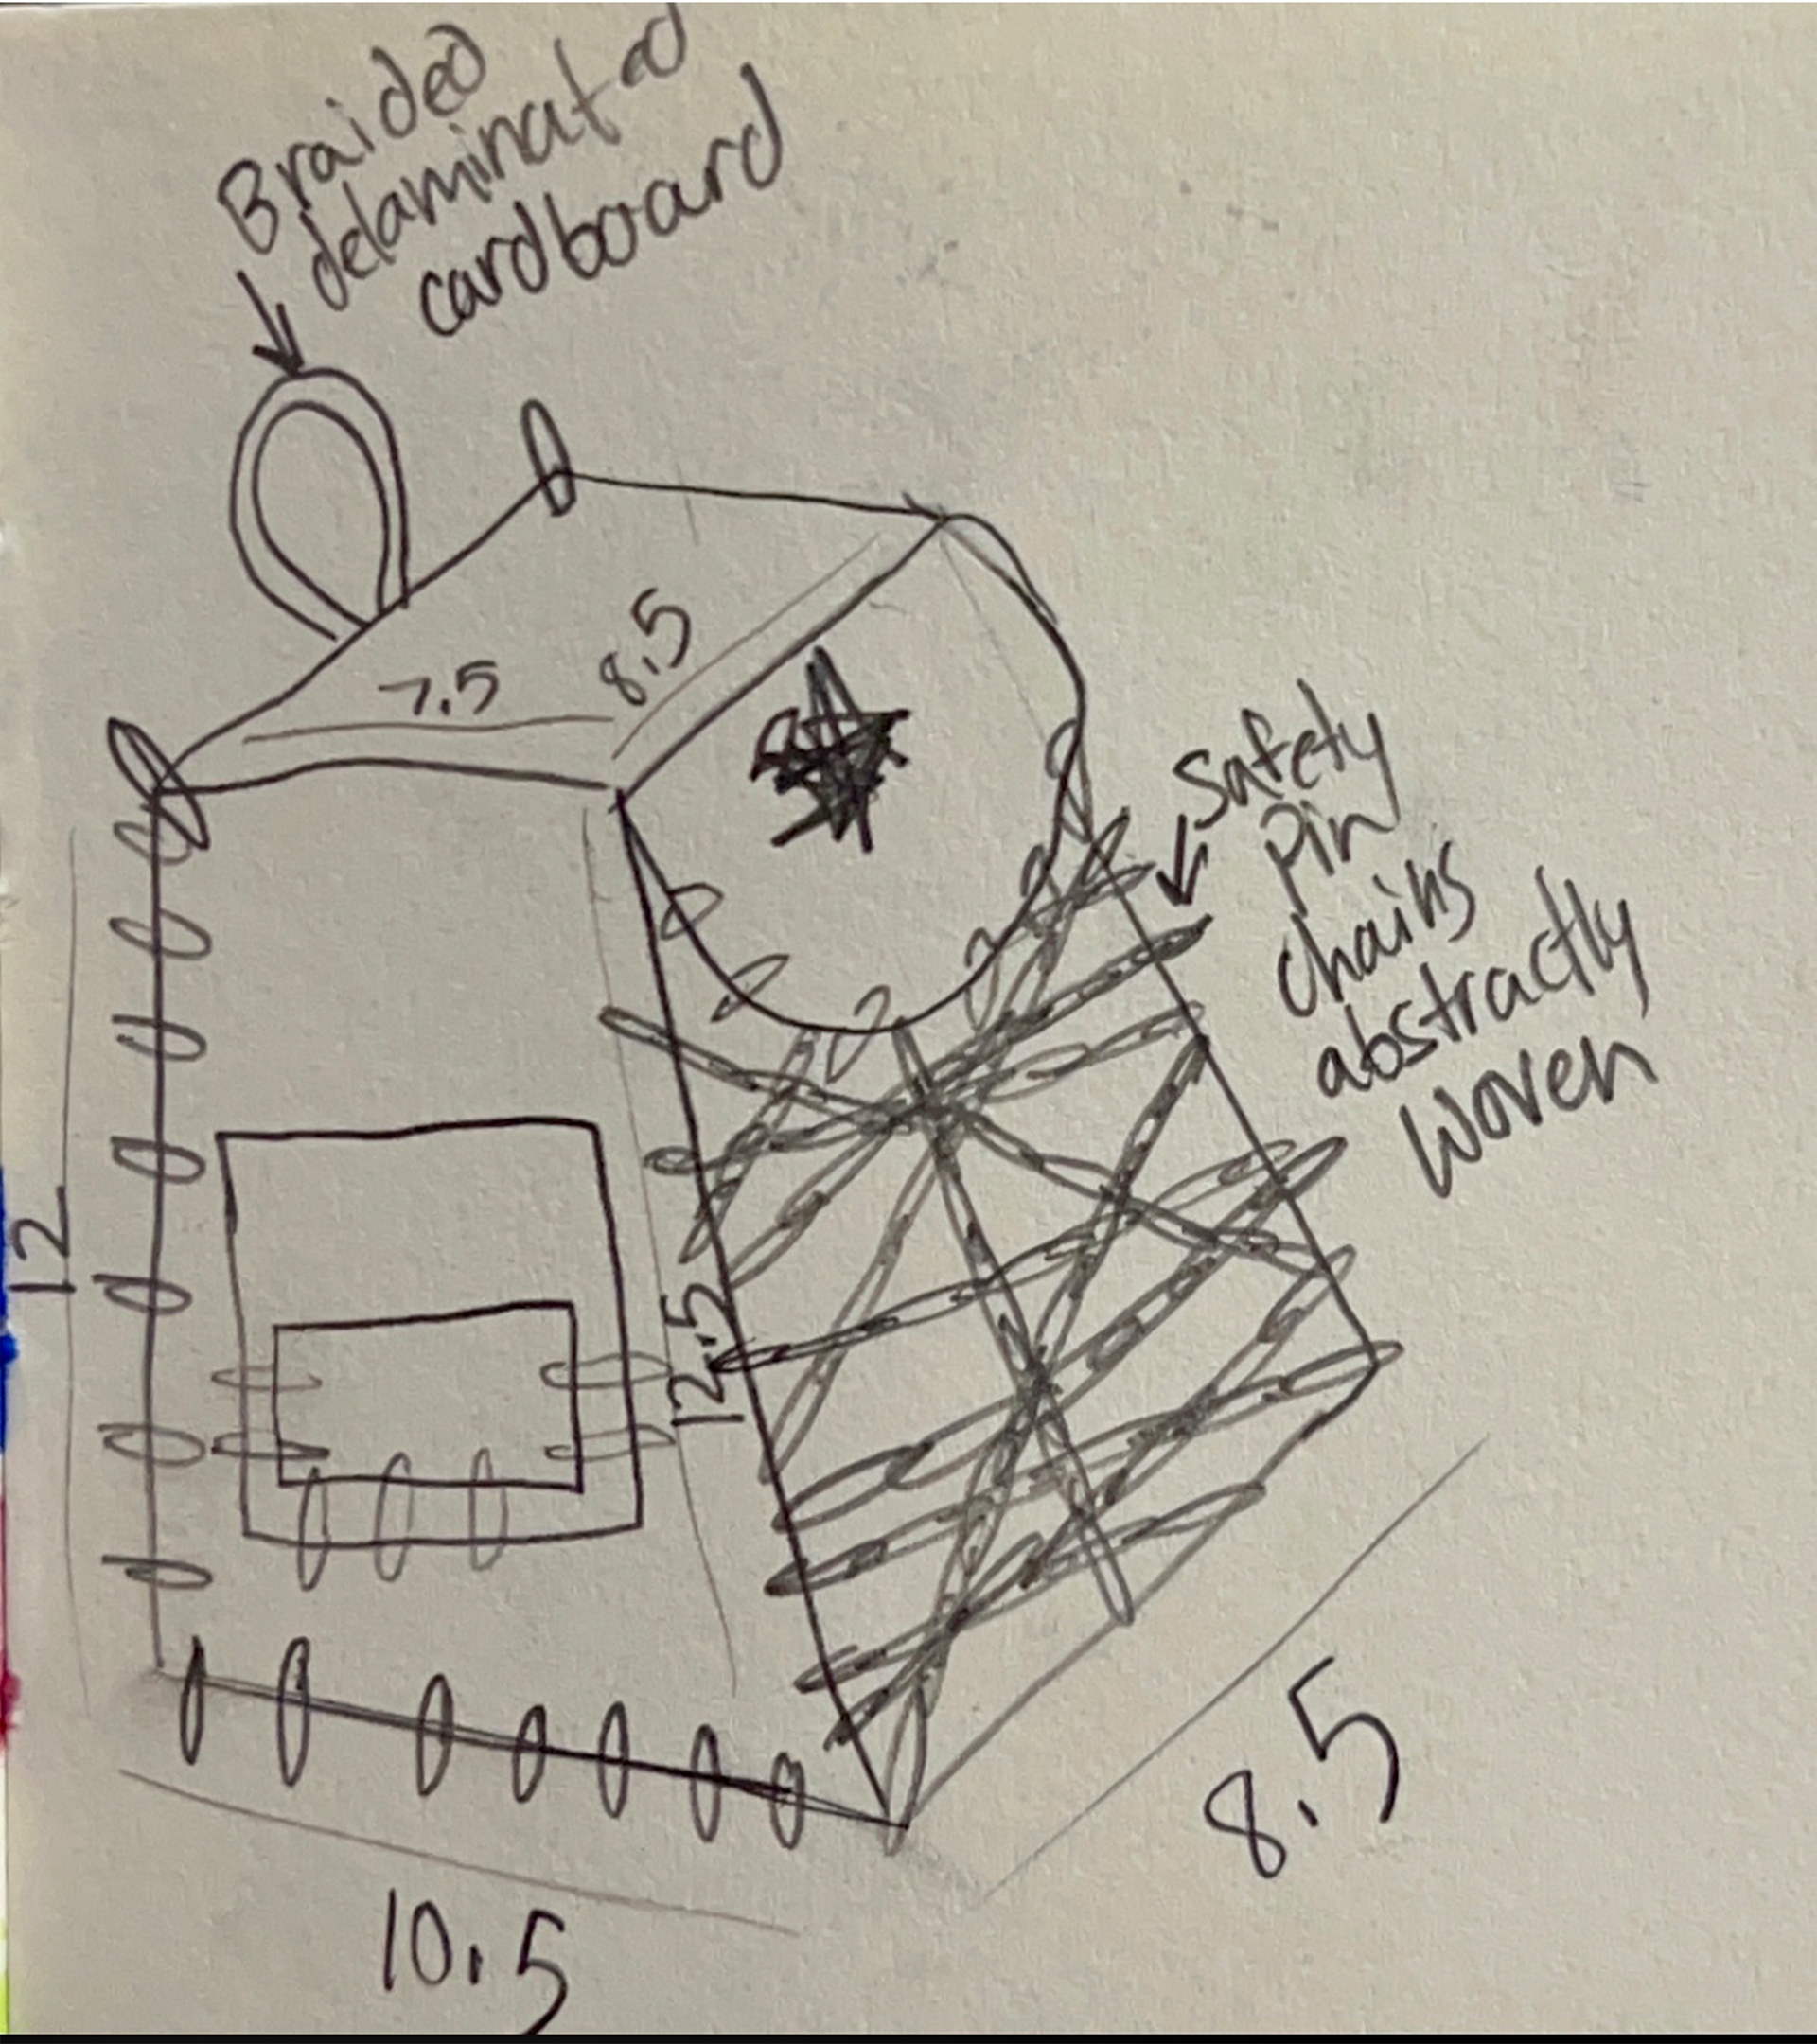 Braided
delaminated
cardboard
7.5
8.5
Safety
Pin
chains
abstractly
Woven
12
12.5
8.5
10.5